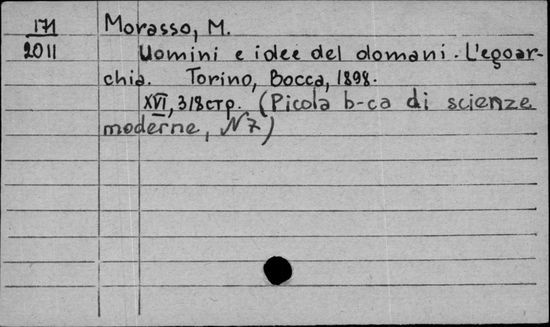 171
2011
Morasso, M.
Uomini e idee del domani. L'egoar-
chia. Torino, Bocca, 1898.
XVI, 318стр. (Picola b-ca di scienze
moderne, N7)